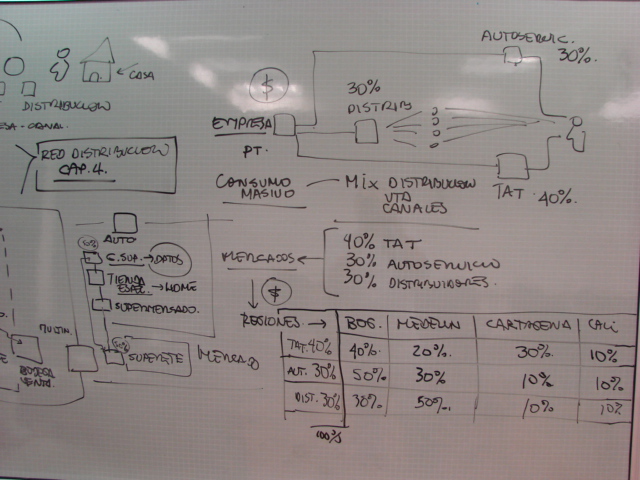 ← COSA
DISTRIBUCION
RED DISTRIBUCION
CAP. 4.
AUTOSERVIC.
30%.
$
30%
DISTRIB
EMPRESA
PT.
TAT 40%.
CONSUMO MASIVO
MIX DISTRIBUCION
VTA
CANALES
MERCADOS
40% TAT
30% AUTOSERVICIO
30% DISTRIBUIDORES.
AUTO
C.SUP. → DATOS
TIENDA
ESPEC. → HOME
SUPERMERCADO.
SUPERETE
MERCADO
MULTIM.
BODEGA
VENTO.
$
REGIONES → BOG. MEDELLIN CARTAGENA CALI
TAT. 40% 40%. 20%. 30%. 10%
AUT. 30% 50%. 30% 10% 10%
DIST. 30% 30%. 50%. 10% 10%
100%